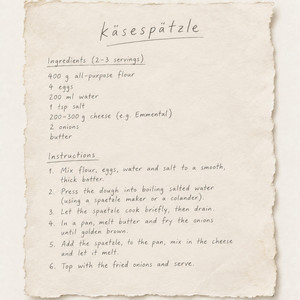 Käsespätzle
Ingredients (2-3 servings)
400 g all-purpose flour
4 eggs
200 ml water
1 tsp salt
200-300 g cheese (e.g. Emmental)
2 onions
butter
Instructions
1. Mix flour, eggs, water and salt to a smooth,
thick batter.
2. Press the dough into boiling salted water
(using a spaetzle maker or a colander).
3. Let the spaetzle cook briefly, then drain.
4. In a pan, melt butter and fry the onions
until golden brown.
5. Add the spaetzle, to the pan, mix in the cheese
and let it melt.
6. Top with the fried onions and serve.